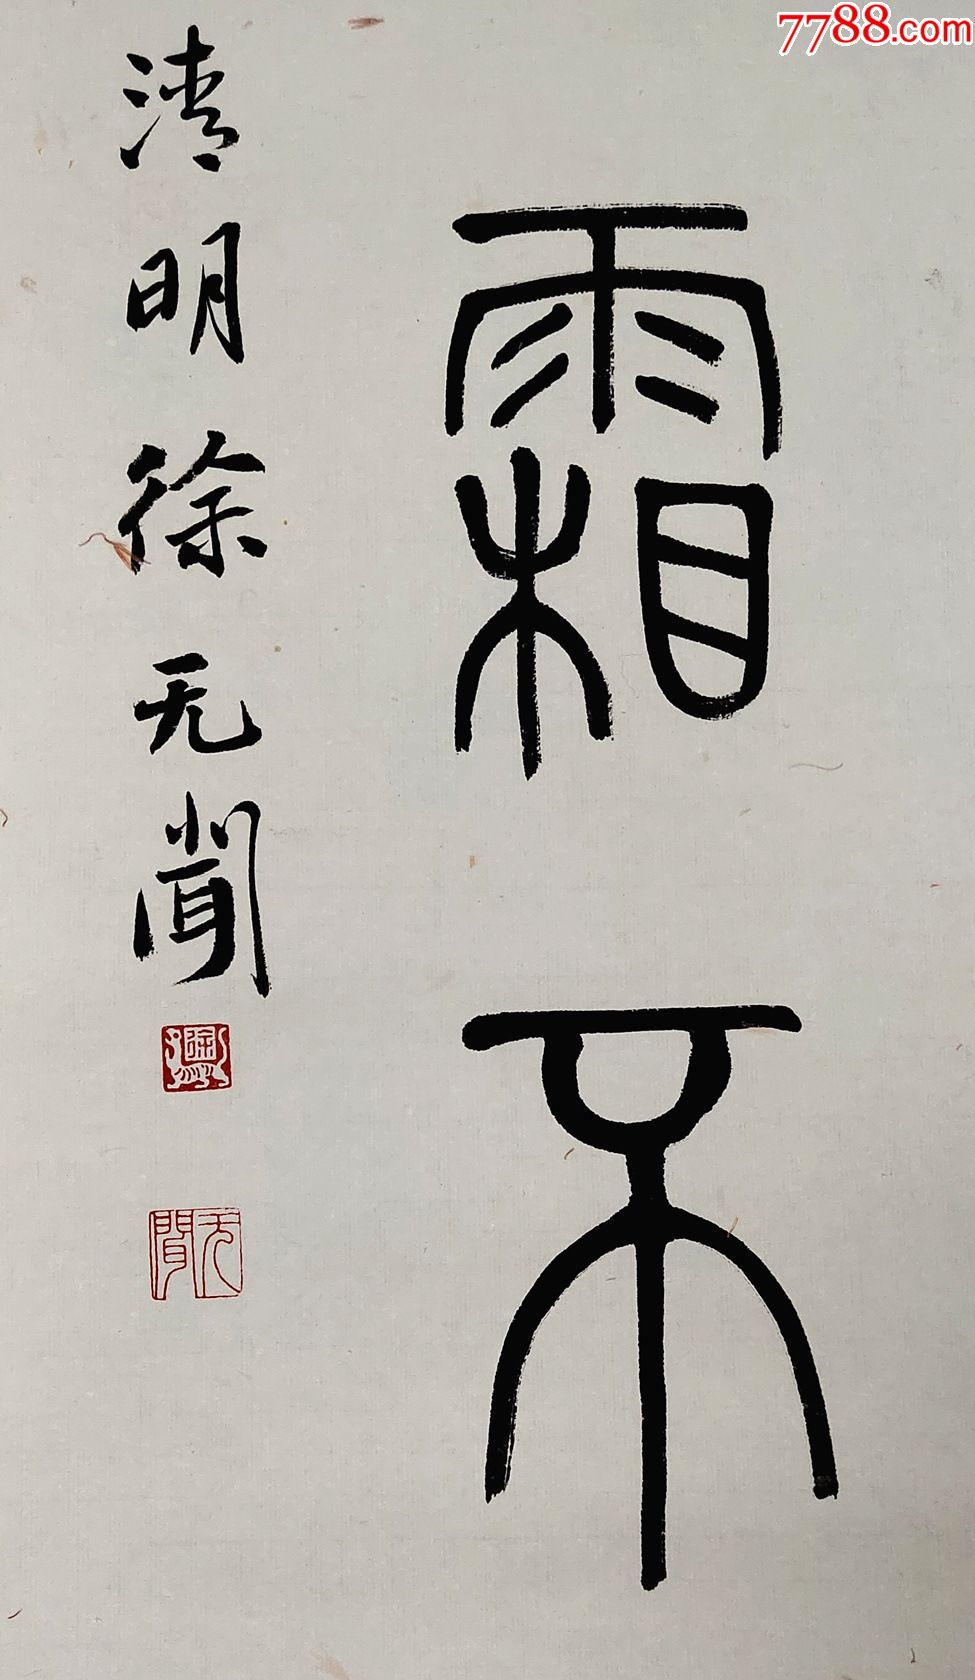 7788.com
霜不
清明徐无闻
徐
无闻